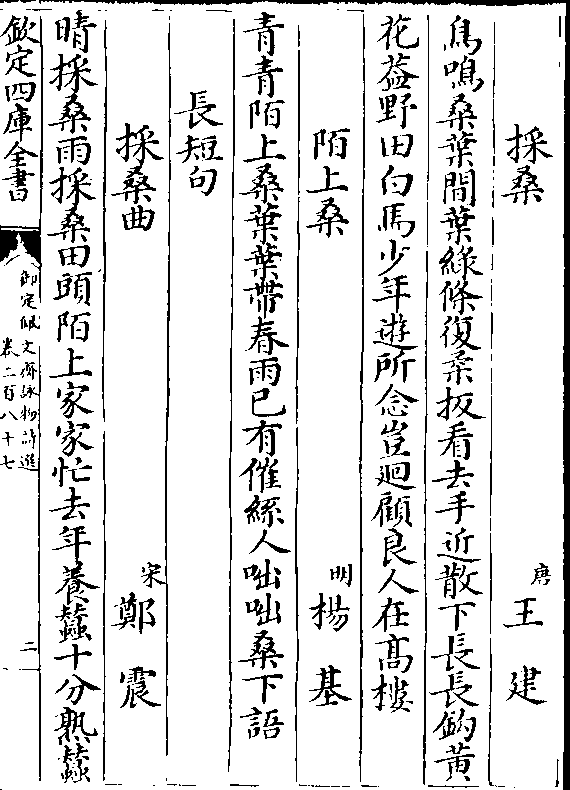 採桑　唐王建
鳥鳴桑葉間葉綠條復柔扳看去手近散下長長鈎黃
花葢野田白馬少年遊所念豈廻顧良人在高樓
陌上桑　明楊基
青青陌上桑葉葉帶春雨已有催絲人咄咄桑下語
長短句
採桑曲　宋鄭震
晴採桑雨採桑田頭陌上家家忙去年養蠶十分熟蠶
欽定四庫全書
御定佩文齋詠物詩選
卷二百八十七
二